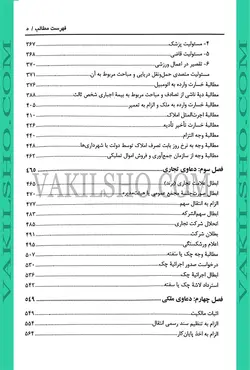 فهرست مطالب / ه
۴- مسئولیت پزشک ۳۶۷
۵- مسئولیت قاضی ۳۶۸
۶- تقصیر در اعمال ورزشی ۳۷۰
مسئولیت متصدی حمل‌ونقل دریایی و مباحث مربوط به آن ۳۷۱
مطالبهٔ خسارت وارده به اتومبیل
مطالبهٔ دیهٔ ناشی از تصادف و مباحث مربوط به بیمهٔ اجباری شخص ثالث
مطالبهٔ خسارت وارده به ملک و الزام به تعمیر
مطالبهٔ اجرت‌المثل املاک
مطالبهٔ خسارت تأخیر تأدیه
مطالبهٔ وجه التزام
مطالبهٔ وجه به نرخ روز بابت تصرف املاک توسط دولت یا شهرداری‌ها
مطالبهٔ وجه از سازمان جمع‌آوری و فروش اموال تملیکی
فصل سوم: دعاوی تجاری ۴۶۵
ابطال علامت تجاری (برند) ۴۶۵
ابطال صورت‌جلسهٔ مجمع عمومی یا هیأت‌مدیره
الزام به انتقال سهم
ابطال سهم‌الشرکه ۴۸۳
انحلال شرکت تجاری
بطلان شرکت
اعلام ورشکستگی
مطالبهٔ وجه چک یا سفته
درخواست صدور اجرائیهٔ چک ۵۳۰
ابطال اجرائیهٔ چک
استرداد لاشهٔ چک یا سفته
فصل چهارم: دعاوی ملکی ۵۴۹
اثبات مالکیت ۵۴۹
الزام به تنظیم سند رسمی انتقال ۵۵۴
الزام به اخذ پایان‌کار ۵۶۲
VAKILSHO.COM
VAKILSHO.COM
VAKILSHO.COM